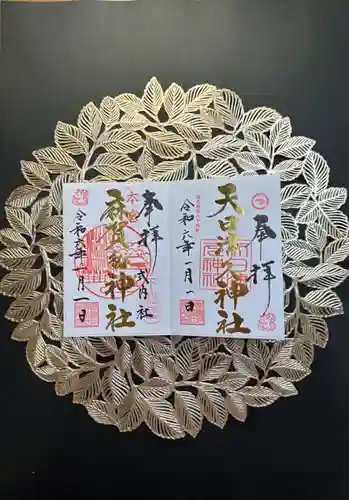 奉拝
天日津久神社
令和六年一月一日
奉拝
式内社
麻賀多神社
令和六年一月一日